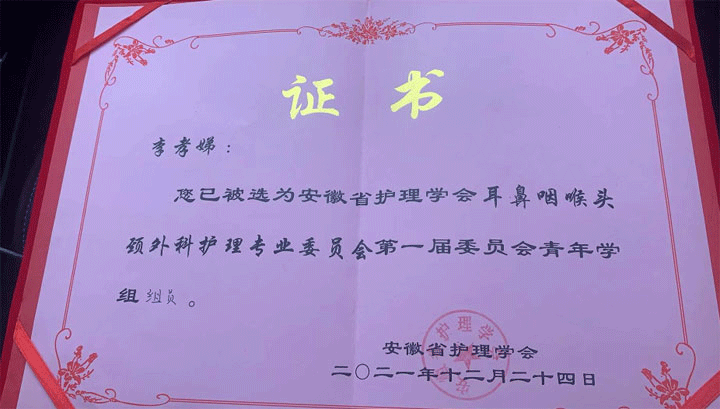 证书
李孝娣：
您已被选为安徽省护理学会耳鼻咽喉头
颈外科护理专业委员会第一届委员会青年学
组组员。
安徽省护理学会
二〇二一年十二月二十四日